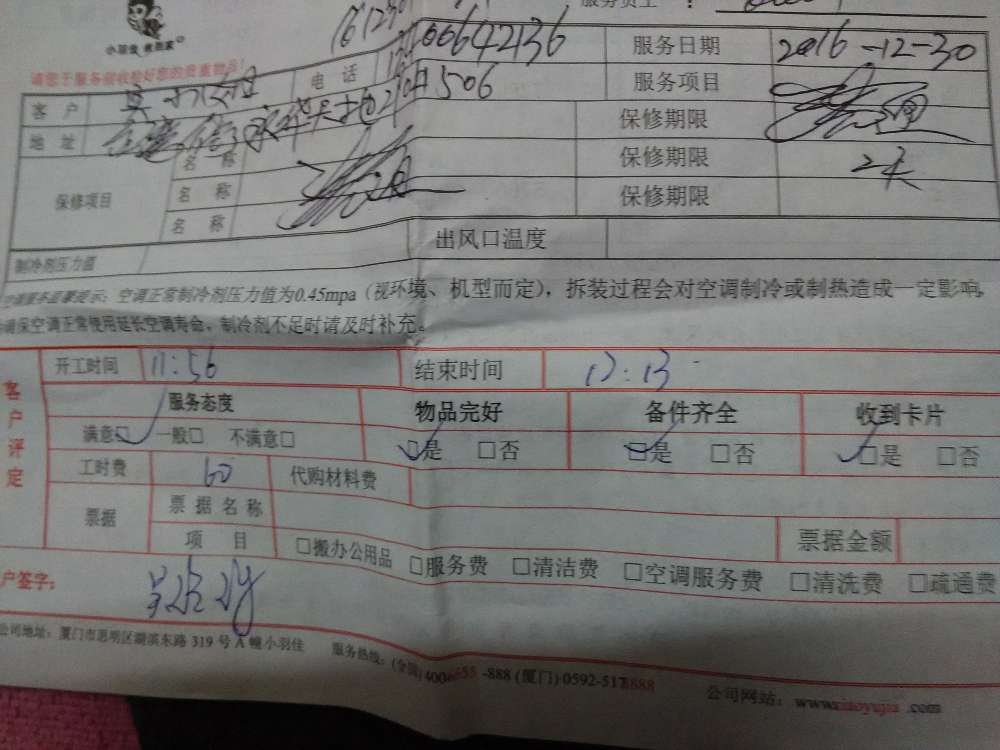 小羽佳 R
服务员工：
请您于服务前收检好您的贵重物品！
00642136 服务日期 2016-12-30
客 户 电 话 服务项目
地 址 506 保修期限
保修项目 名 称 保修期限 2天
名 称 保修期限
名 称
制冷剂压力值 出风口温度
空调服务温馨提示：空调正常制冷剂压力值为0.45mpa（视环境、机型而定），拆装过程会对空调制冷或制热造成一定影响，
确保空调正常使用延长空调寿命，制冷剂不足时请及时补充。
客户评定
开工时间 11:56 结束时间 12:13
服务态度 物品完好 备件齐全 收到卡片
满意□ 一般□ 不满意□ □是 □否 □是 □否 □是 □否
工时费 60 代购材料费
票据 票据名称 票据金额
项 目 □搬办公用品 □服务费 □清洁费 □空调服务费 □清洗费 □疏通费
户签字：
公司地址：厦门市思明区湖滨东路 319 号 A 幢小羽佳 服务热线：(全国) -888 (厦门) 0592-5178888 公司网站：www.xiaoyujia.com